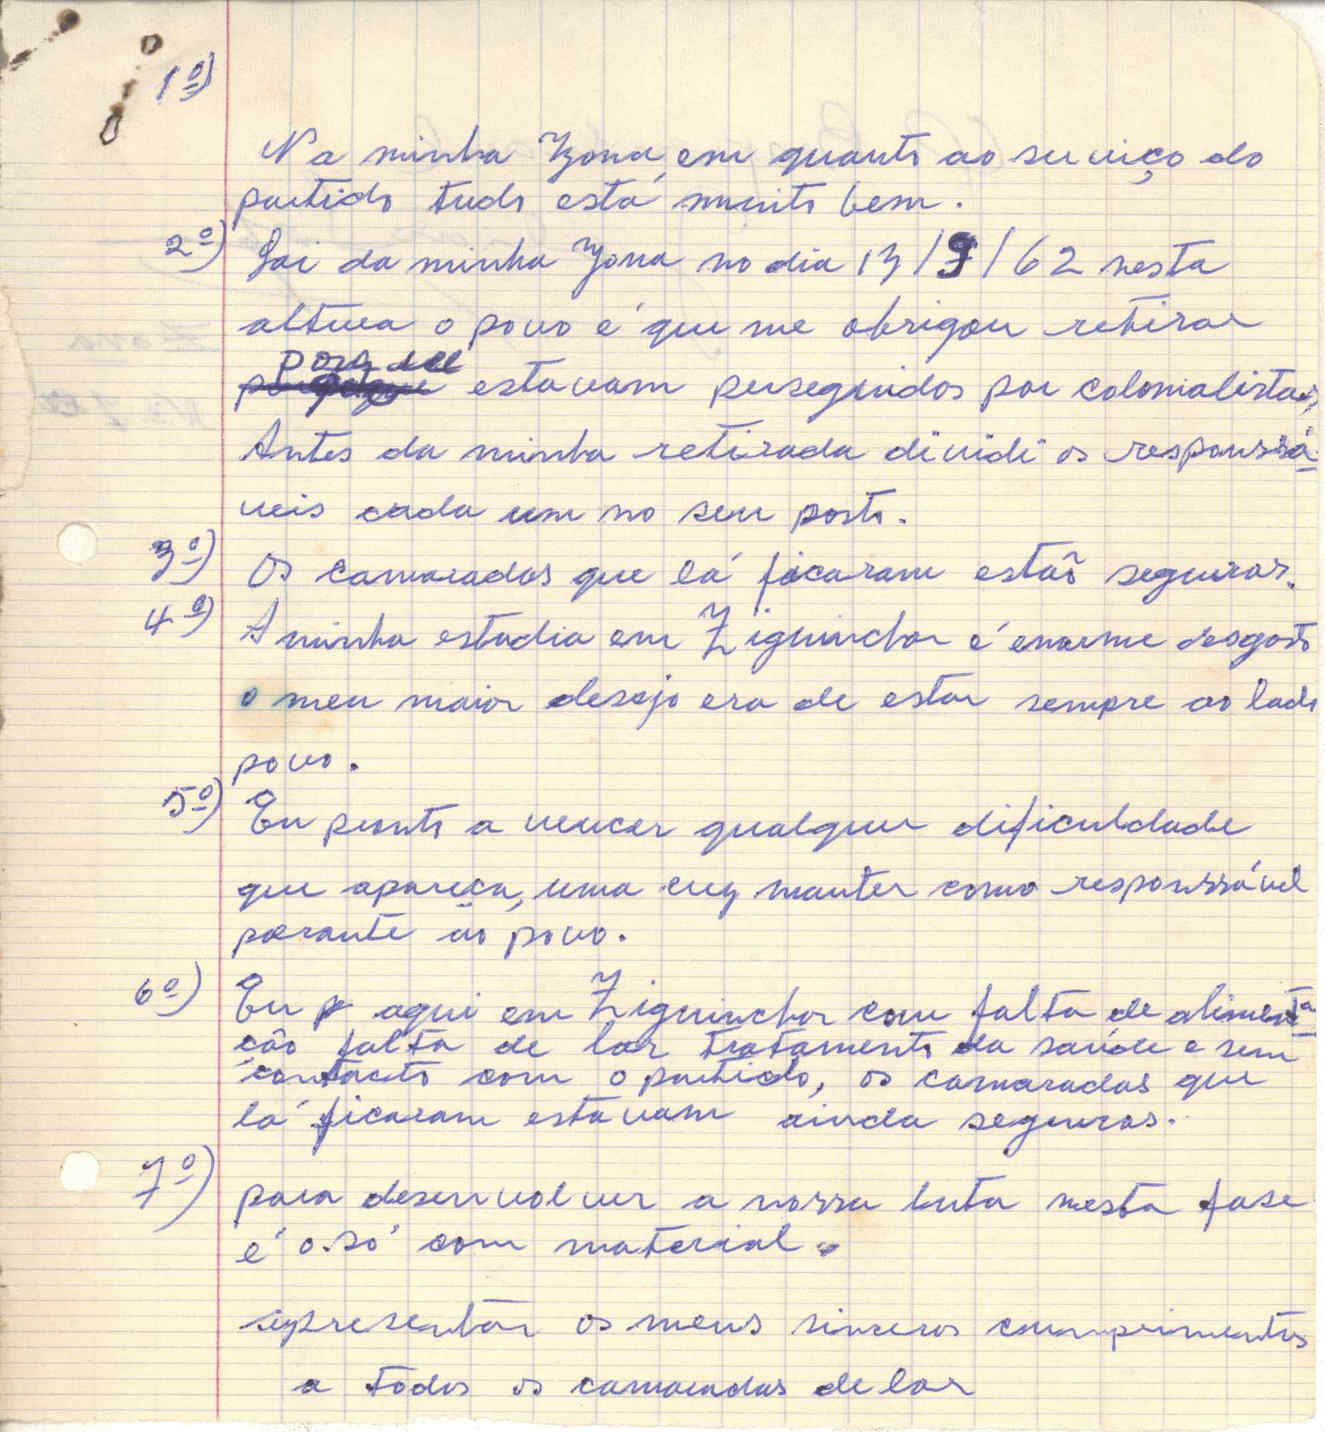 1º)
Na minha Zona, em quanto ao serviço do
partido tudo está muito bem.
2º) Sai da minha Zona no dia 13/9/62 nesta
altura o povo é que me obrigou retirar
porque
estavam perseguidos por colonialistas,
Antes da minha retirada dividi os responssá-
veis cada um no seu posto.
3º) Os camaradas que lá ficaram estão seguros.
4º) A minha estadia em Ziguinchor é enorme desgosto
o meu maior desejo era de estar sempre ao lado
povo.
5º) Eu pronto a vencer qualquer dificuldade
que apareça, uma vez manter como responssável
perante ao povo.
6º) Eu aqui em Ziguinchor com falta de alimenta-
ção falta de lar tratamento da saúde e sem
contacto com o partido, os camaradas que
lá ficaram estavam ainda seguros.
7º) para desenvolver a nossa luta nesta fase
é o só com material.
apresentar os meus sinceros cumprimentos
a todos os camaradas de lar